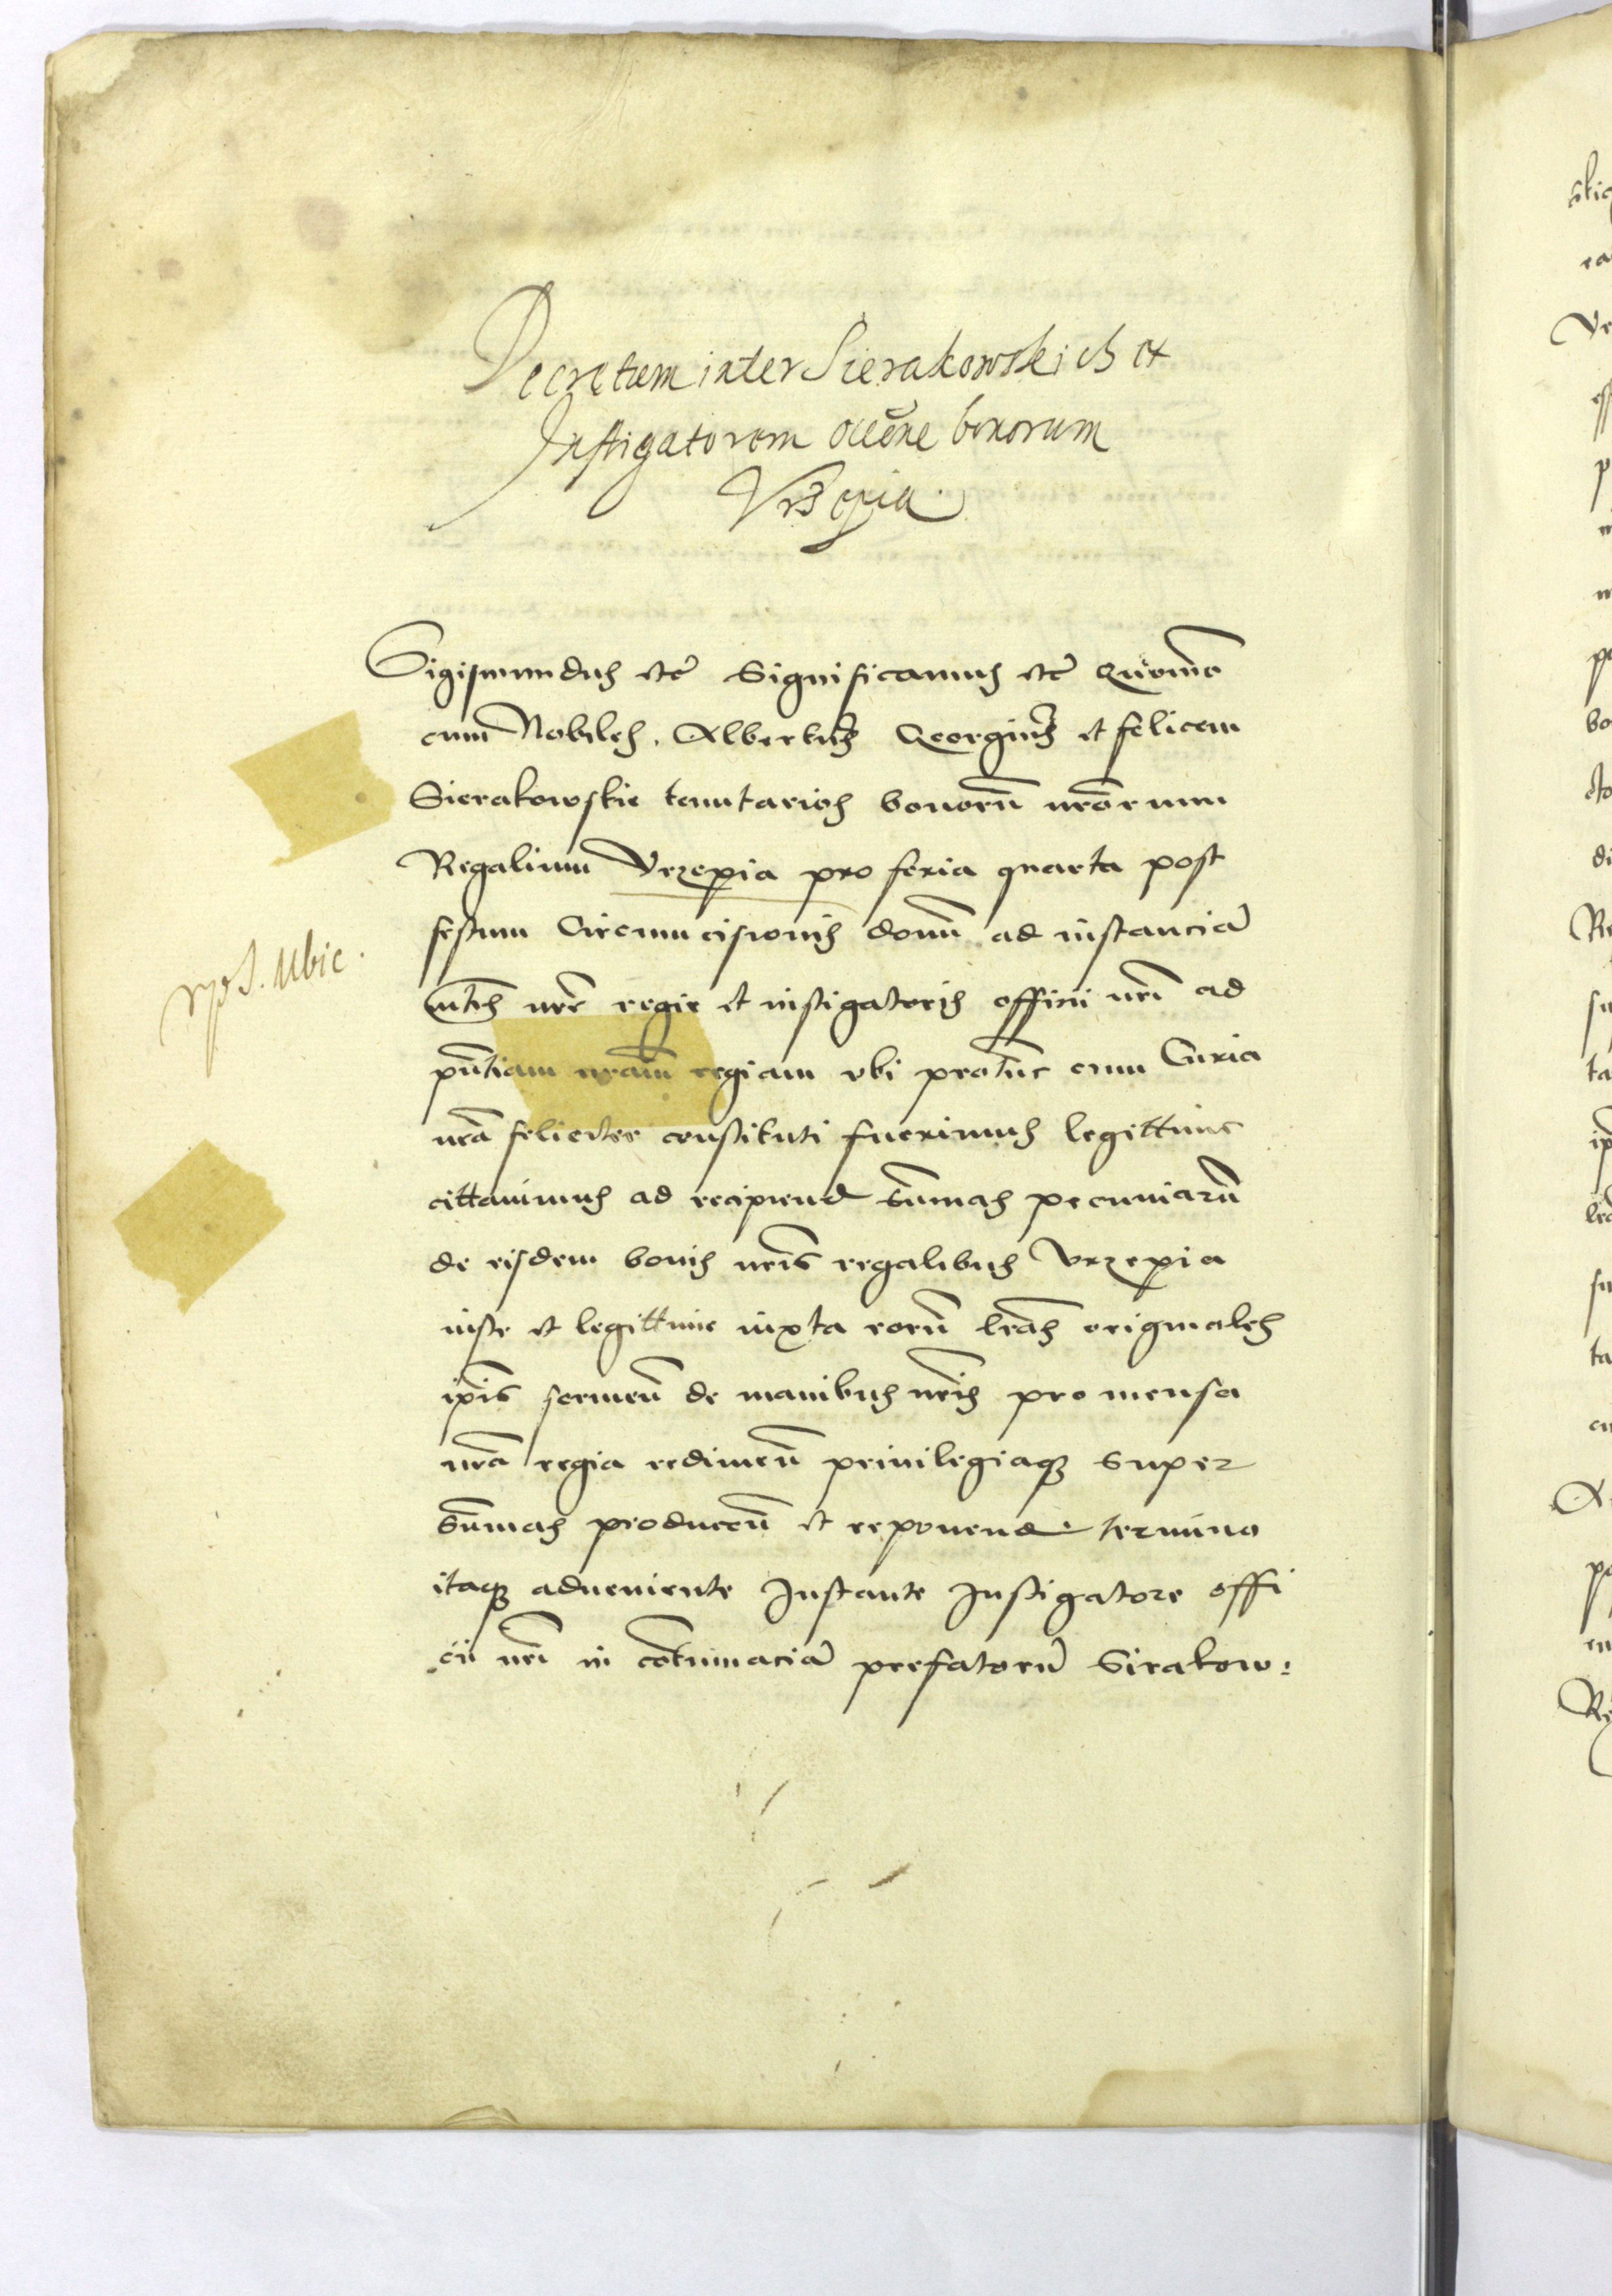 Decretum inter Sierakowskich et
Instigatorem occone bonorum
Vrzepia.
Sigismundus etc Significamus etc Quomo
cum Nobiles. Albertus Georgius et felicem
Sierakowskie tenutarios bonoru nrorum
Regalium Vrzepia pro feria quarta post
festum Circumcisionis domi ad instancia
mtis nre regie et instigatoris officii nri ad
pntiam nram regiam vbi protunc cum Curia
nra feliciter constituti fuerimus legittime
cittauimus ad recipiend summas pecuniaru
de eisdem bonis nris regalibus Vrzepia
iuste et legittime iuxta eoru lras originales
ipis de manibus nris pro mensa
nra regia redimen priuilegiaque super
summas producen et reponend. termino
itaque adueniente Instante Instigatore offi
cii nri in contumacia prefatoru Sirakow:
Ubic.